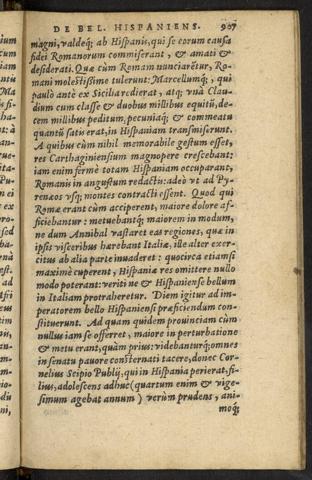 DE BEL. HISPANIENS. 907
màgni, valdeq́; ab Hispanis, qui se eorum causa
fidei Romanorum commiserant, & amati &
desiderati. Quæ cùm Romam nunciarētur, Ro-
mani molestissimè tulerunt: Marcellumq́;, qui
paulò antè ex Sicilia redierat, atq; unà Clau-
dium cum classe & duobus millibus equitũ, de-
cem millibus peditum, pecuniaq́; & commeatu
quantũ satis erat, in Hispaniam transmiserunt.
A quibus cùm nihil memorabile gestum esset,
res Carthaginiensium magnopere crescebant:
iam enim fermè totam Hispaniam occuparant,
Romanis in angustum redactis: adeò vt ad Py-
renæos vsq; montes contracti essent. Quod qui
Romæ erant cùm acciperent, maiore dolore af-
ficiebantur: metuebantq́; maiorem in modum,
ne dum Annibal vastaret eas regiones, quæ in
ipsis visceribus hærebant Italiæ, ille alter exer-
citus ab alia parte inuaderet: quocirca etiamsi
maximè cuperent, Hispaniæ res omittere nullo
modo poterant: veriti ne & Hispaniense bellum
in Italiam protraheretur. Diem igitur ad im-
peratorem bello Hispaniensi præficiendum con-
stituerunt. Ad quam quidem prouinciam cùm
nullus iam se offerret, maiore in perturbatione
& metu erant, quàm prius: videbanturq́; omnes
in senatu pauore consternati tacere, donec Cor-
nelius Scipio Publij, qui in Hispania perierat, fi-
lius, adolescens adhuc (quartum enim & vige-
simum agebat annum) verùm prudens, ani-
moq́;